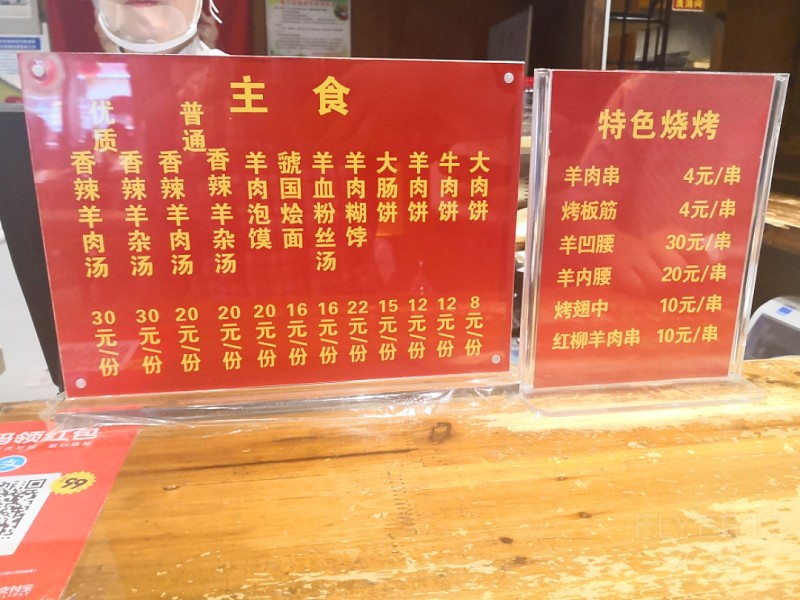 主食
优质
普通
香辣羊肉汤 30元/份
香辣羊杂汤 30元/份
香辣羊肉汤 20元/份
香辣羊杂汤 20元/份
羊肉泡馍 20元/份
虢国烩面 16元/份
羊血粉丝汤 16元/份
羊肉糊饽 22元/份
大肠饼 15元/份
羊肉饼 12元/份
牛肉饼 12元/份
大肉饼 8元/份
特色烧烤
羊肉串 4元/串
烤板筋 4元/串
羊凹腰 30元/串
羊内腰 20元/串
烤翅中 10元/串
红柳羊肉串 10元/串
码领红包
99
支付宝